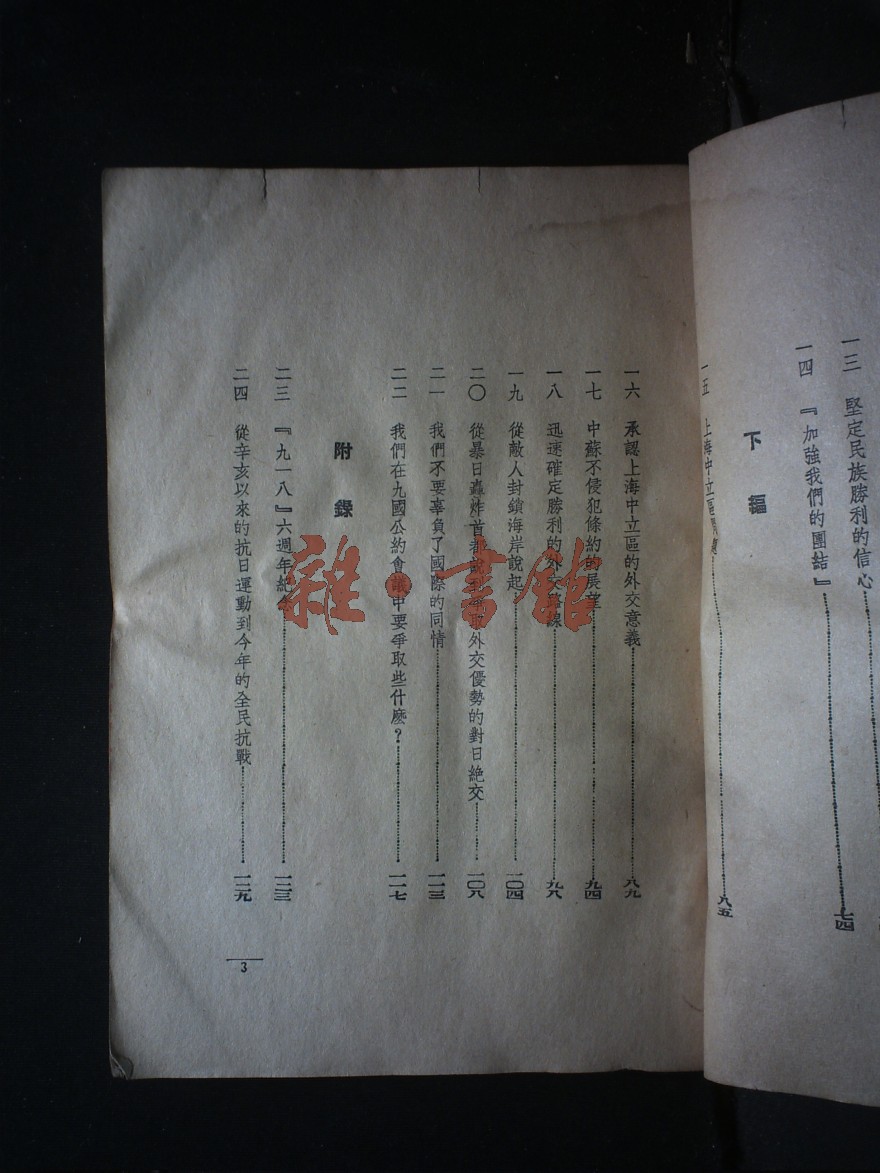 一三 堅定民族勝利的信心
一四 『加強我們的團結』 七四
下編
一五 上海中立區 八五
一六 承認上海中立區的外交意義 八九
一七 中蘇不侵犯條約的展望 九四
一八 迅速確定勝利的外交路線 九六
一九 從敵人封鎖海岸說起 一〇四
二〇 從暴日轟炸首都說到爭取外交優勢的對日絕交 一〇八
二一 我們不要辜負了國際的同情 一一三
二二 我們在九國公約會議中要爭取些什麼？ 一一七
附錄
二三 『九一八』六週年紀念 一二三
二四 從辛亥以來的抗日運動到今年的全民抗戰 一二九
3
雜·書館